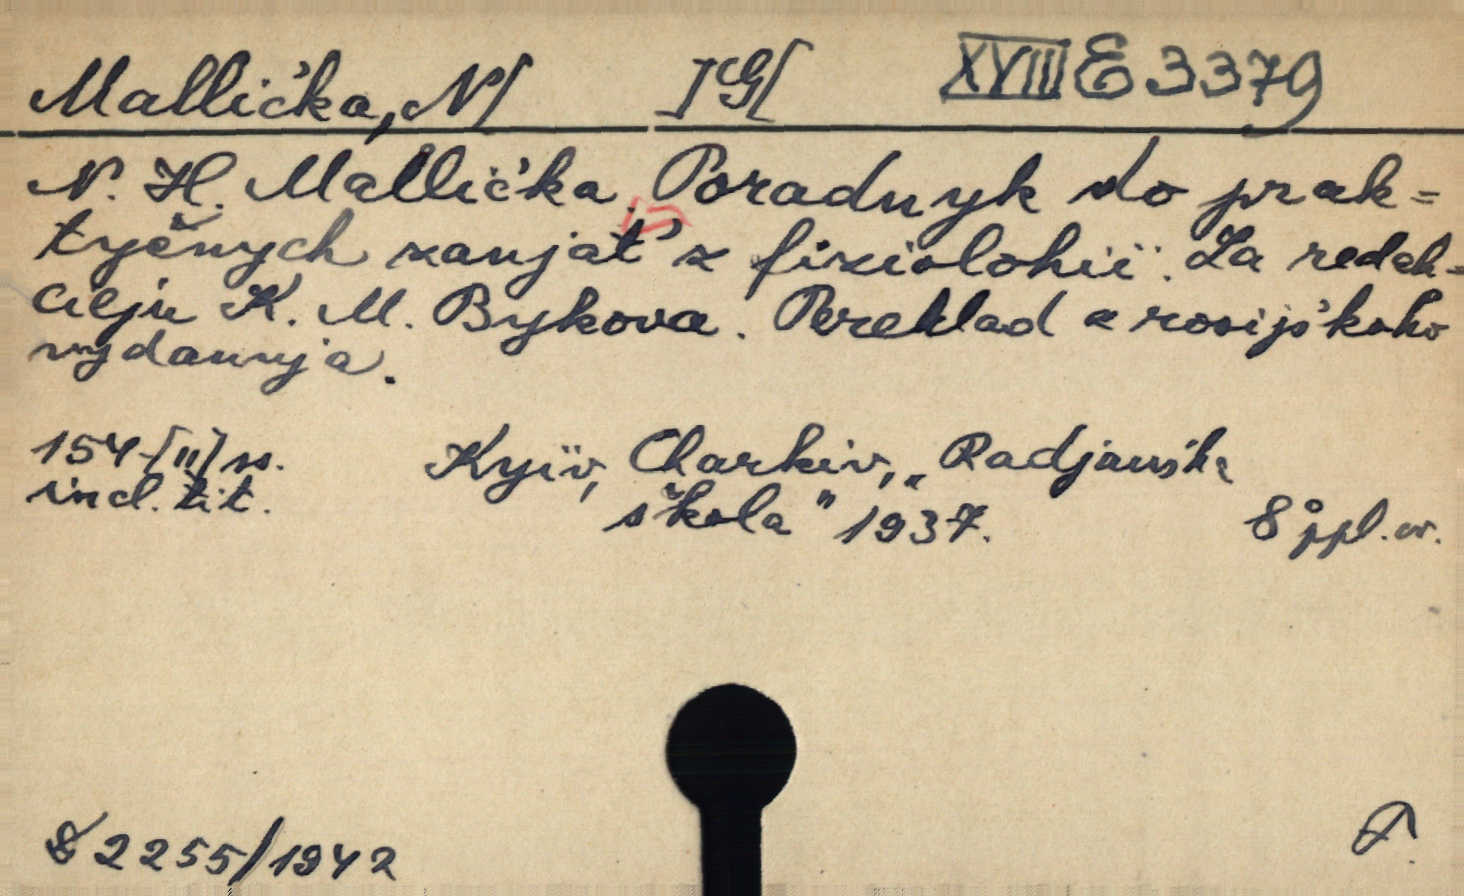 Mallička, N[ ]G[ XVIII E 3379
N. H. Mallička. Poradnyk do prak=
tyčnych zanjat' z fiziolohiï. Za redak=
cijeju K. M. Bykova. Pereklad z rosijs'koho
vydannja.
154-[II] ss. Kyïv, Charkiv, „Radjans'ka
incl. tit. škola" 1937. 8° ppl. or.
2255/1942